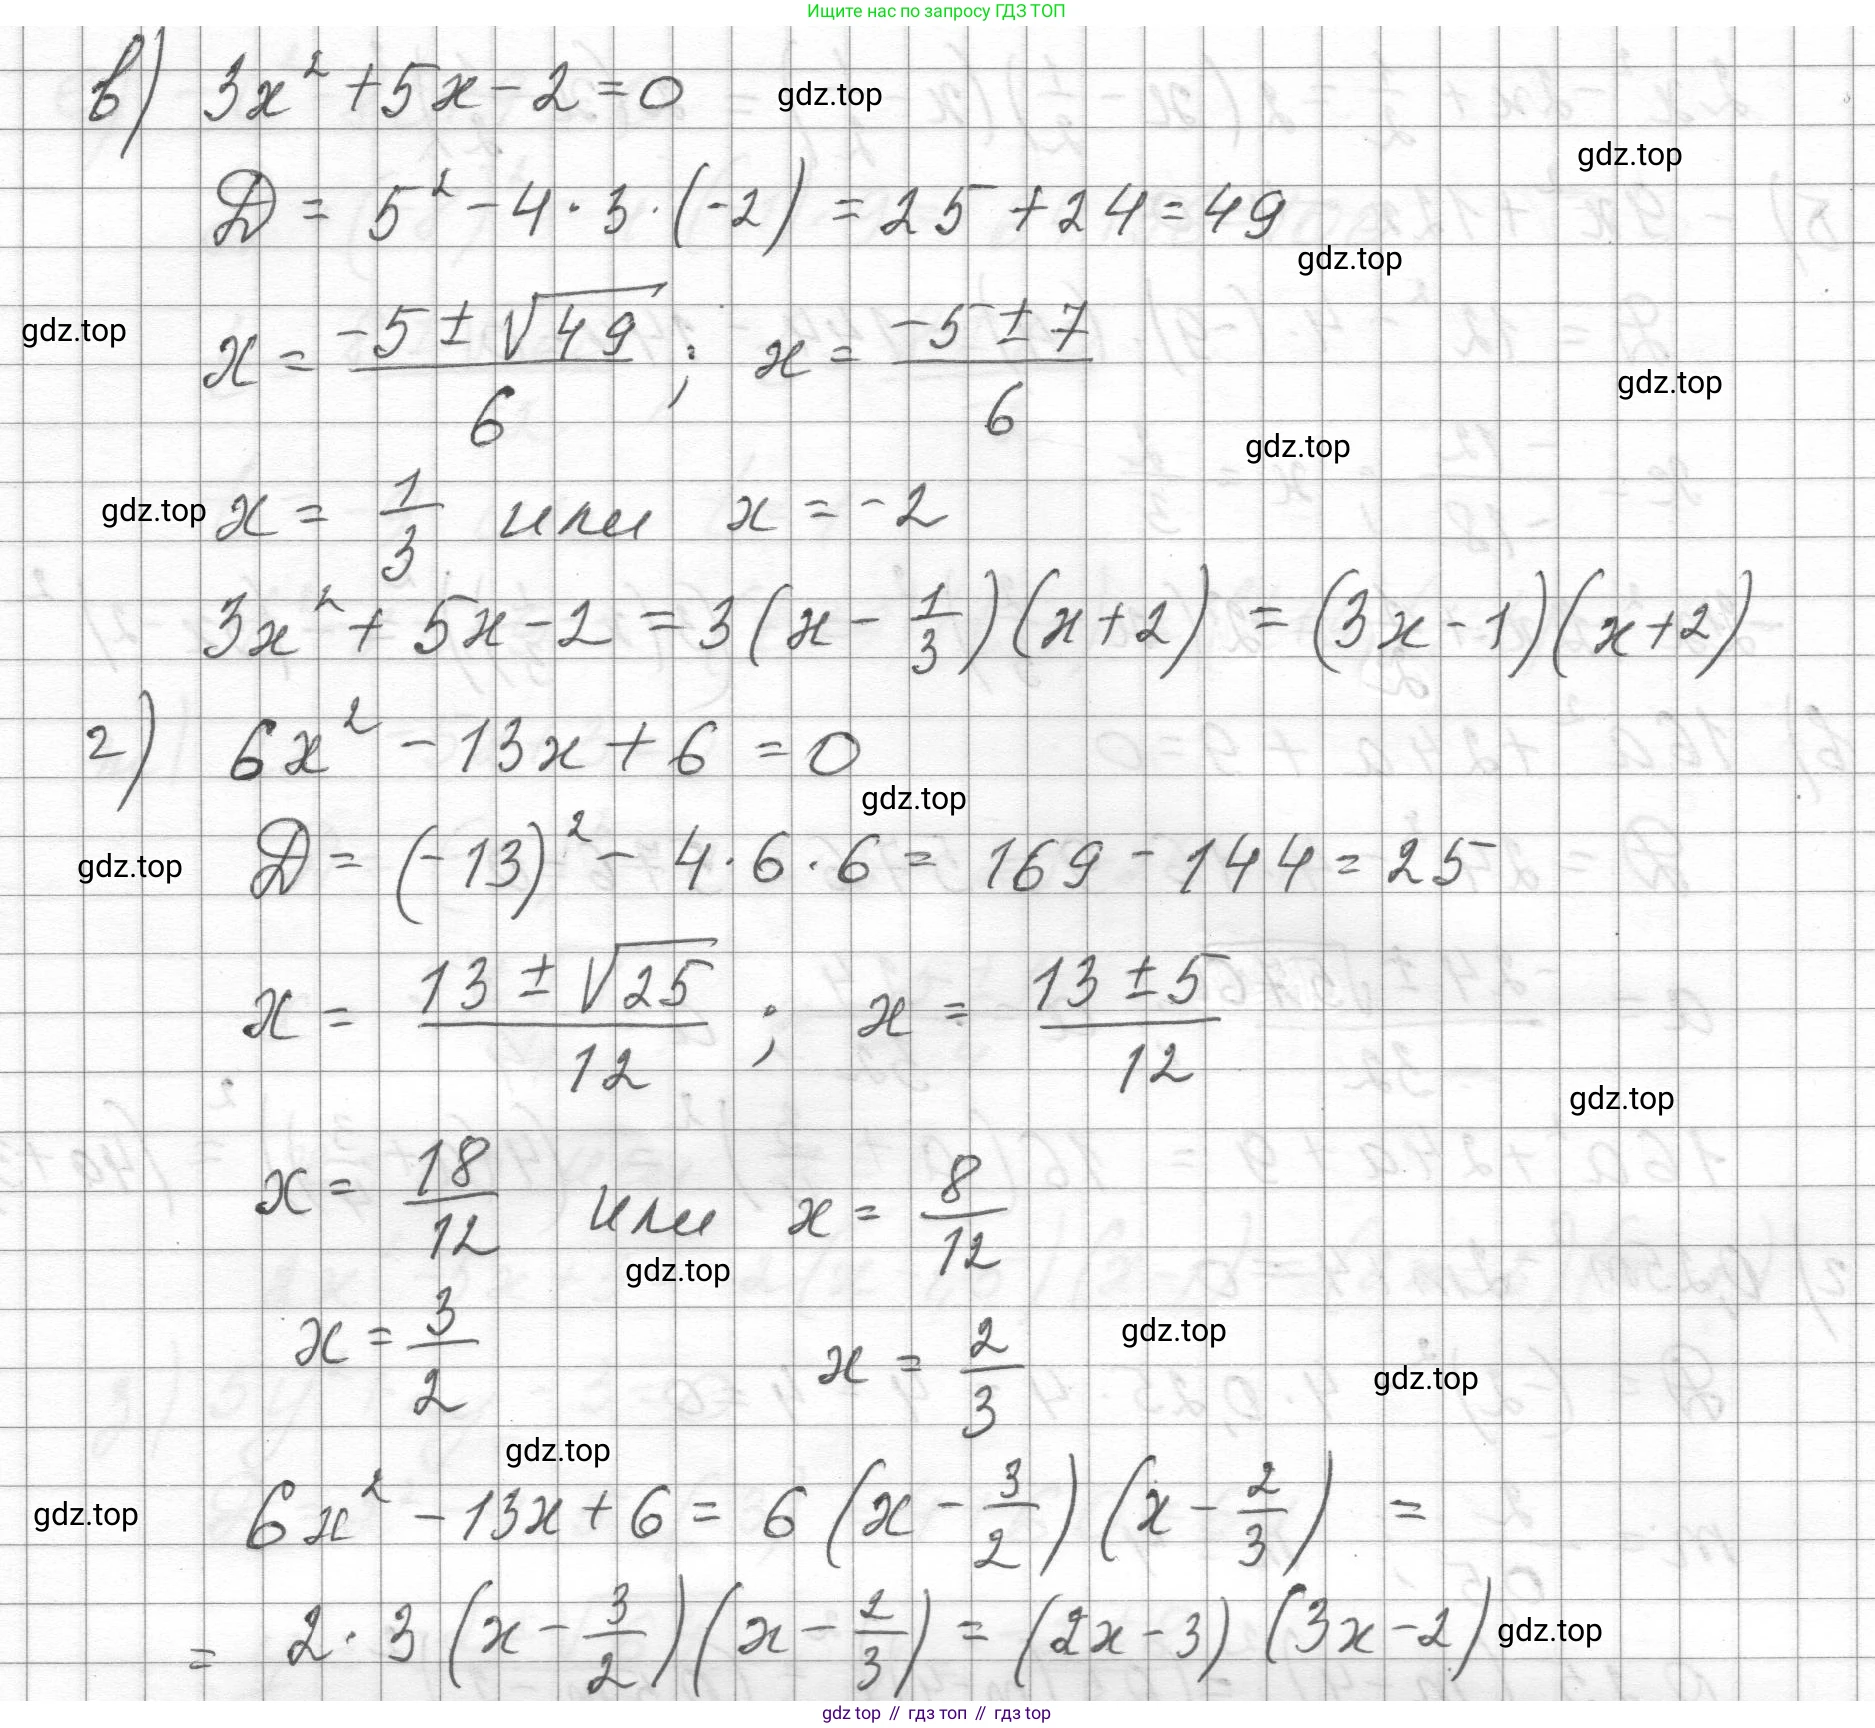 Ищите нас по запросу ГДЗ ТОП
в) 3x² + 5x - 2 = 0
gdz.top
gdz.top
D = 5² - 4 · 3 · (-2) = 25 + 24 = 49
gdz.top
gdz.top
x = (-5 ± √49)/6 ; x = (-5 ± 7)/6
gdz.top
gdz.top
gdz.top
x = 1/3 или x = -2
3x² + 5x - 2 = 3(x - 1/3)(x + 2) = (3x - 1)(x + 2)
г) 6x² - 13x + 6 = 0
gdz.top
gdz.top
D = (-13)² - 4 · 6 · 6 = 169 - 144 = 25
x = (13 ± √25)/12 ; x = (13 ± 5)/12
gdz.top
x = 18/12 или x = 8/12
gdz.top
x = 3/2 x = 2/3
gdz.top
gdz.top
gdz.top
gdz.top
6x² - 13x + 6 = 6(x - 3/2)(x - 2/3) =
= 2 · 3(x - 3/2)(x - 2/3) = (2x - 3)(3x - 2)
gdz.top
gdz top // гдз топ // гдз top